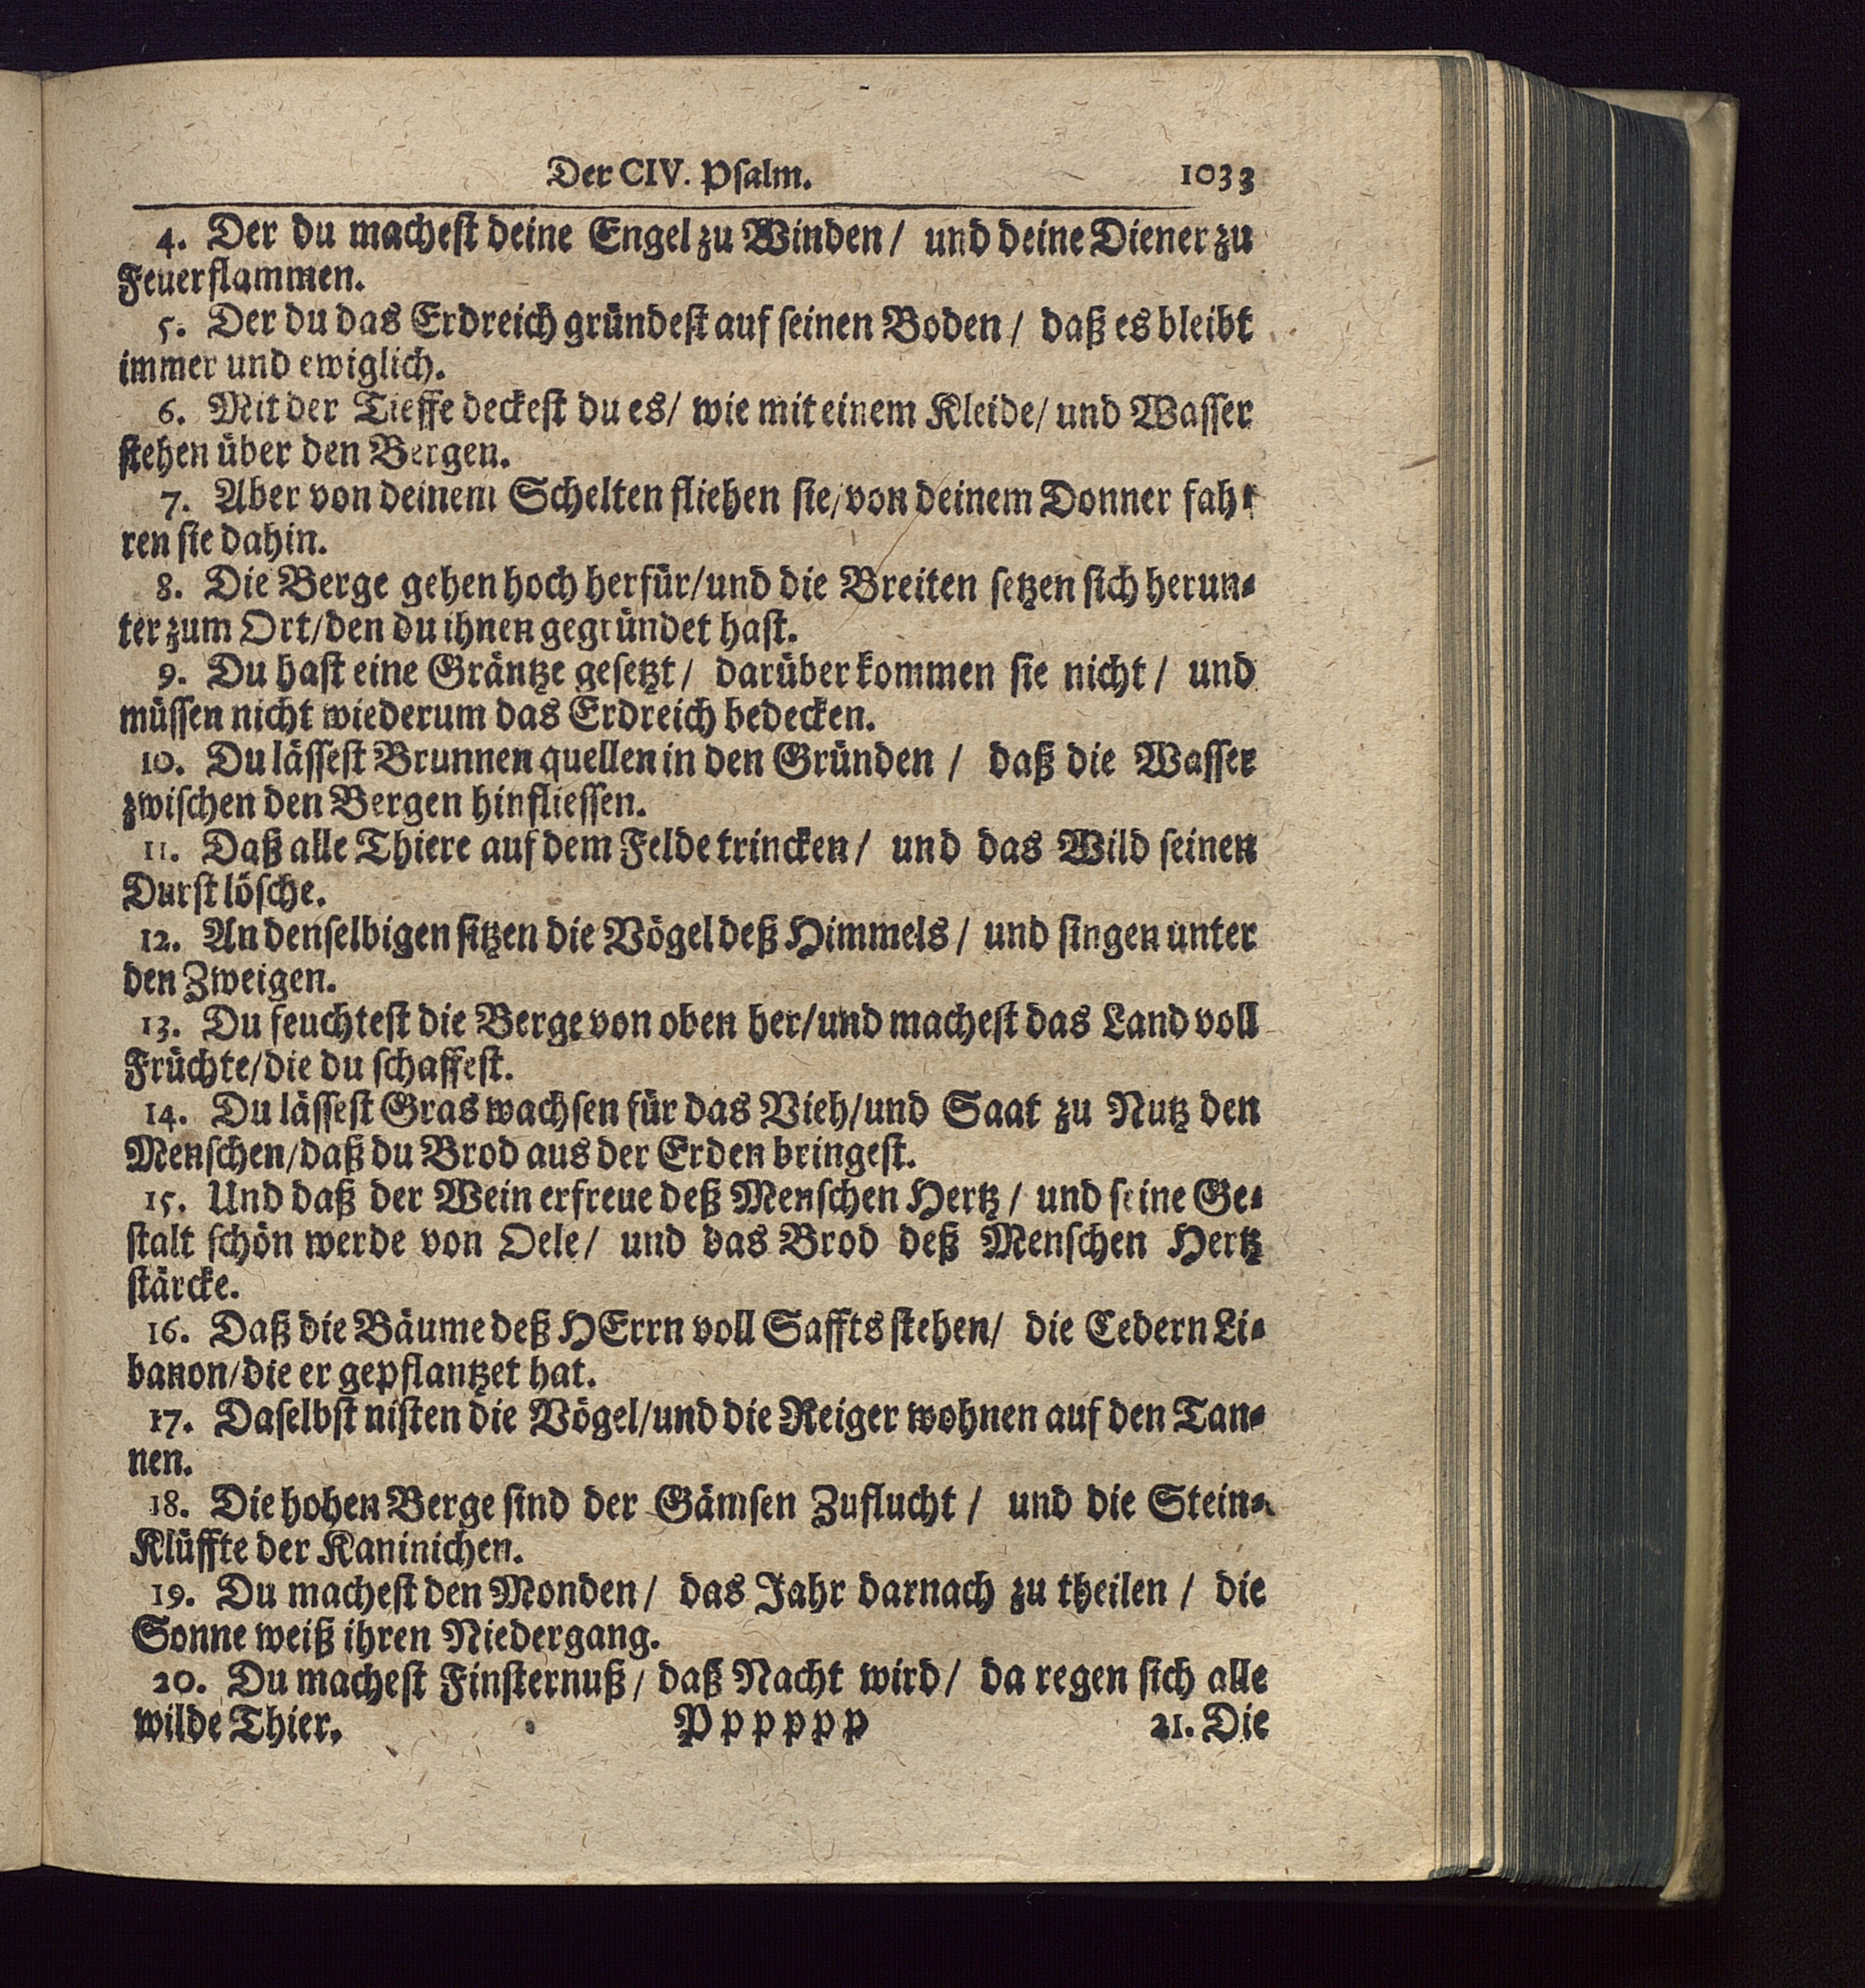 Der CIV. Psalm. 1033
4. Der du machest deine Engel zu Winden / und deine Diener zu
Feuerflammen.
5. Der du das Erdreich gründest auf seinen Boden / daß es bleibt
immer und ewiglich.
6. Mit der Tieffe deckest du es / wie mit einem Kleide / und Wasser
stehen über den Bergen.
7. Aber von deinem Schelten fliehen sie / von deinem Donner fah-
ren sie dahin.
8. Die Berge gehen hoch herfür / und die Breiten setzen sich herun-
ter zum Ort / den du ihnen gegründet hast.
9. Du hast eine Gräntze gesetzt / darüber kommen sie nicht / und
müssen nicht wiederum das Erdreich bedecken.
10. Du lässest Brunnen quellen in den Gründen / daß die Wasser
zwischen den Bergen hinfliessen.
11. Daß alle Thiere auf dem Felde trincken / und das Wild seinen
Durst lösche.
12. An denselbigen sitzen die Vögel deß Himmels / und singen unter
den Zweigen.
13. Du feuchtest die Berge von oben her / und machest das Land voll
Früchte / die du schaffest.
14. Du lässest Gras wachsen für das Vieh / und Saat zu Nutz den
Menschen / daß du Brod aus der Erden bringest.
15. Und daß der Wein erfreue deß Menschen Hertz / und seine Ge-
stalt schön werde von Oele / und das Brod deß Menschen Hertz
stärcke.
16. Daß die Bäume deß HErrn voll Saffts stehen / die Cedern Li-
banon / die er gepflantzet hat.
17. Daselbst nisten die Vögel / und die Reiger wohnen auf den Tan-
nen.
18. Die hohen Berge sind der Gämsen Zuflucht / und die Stein-
Klüffte der Kaninichen.
19. Du machest den Monden / das Jahr darnach zu theilen / die
Sonne weiß ihren Niedergang.
20. Du machest Finsternuß / daß Nacht wird / da regen sich alle
wilde Thier. Pppppp 21. Die